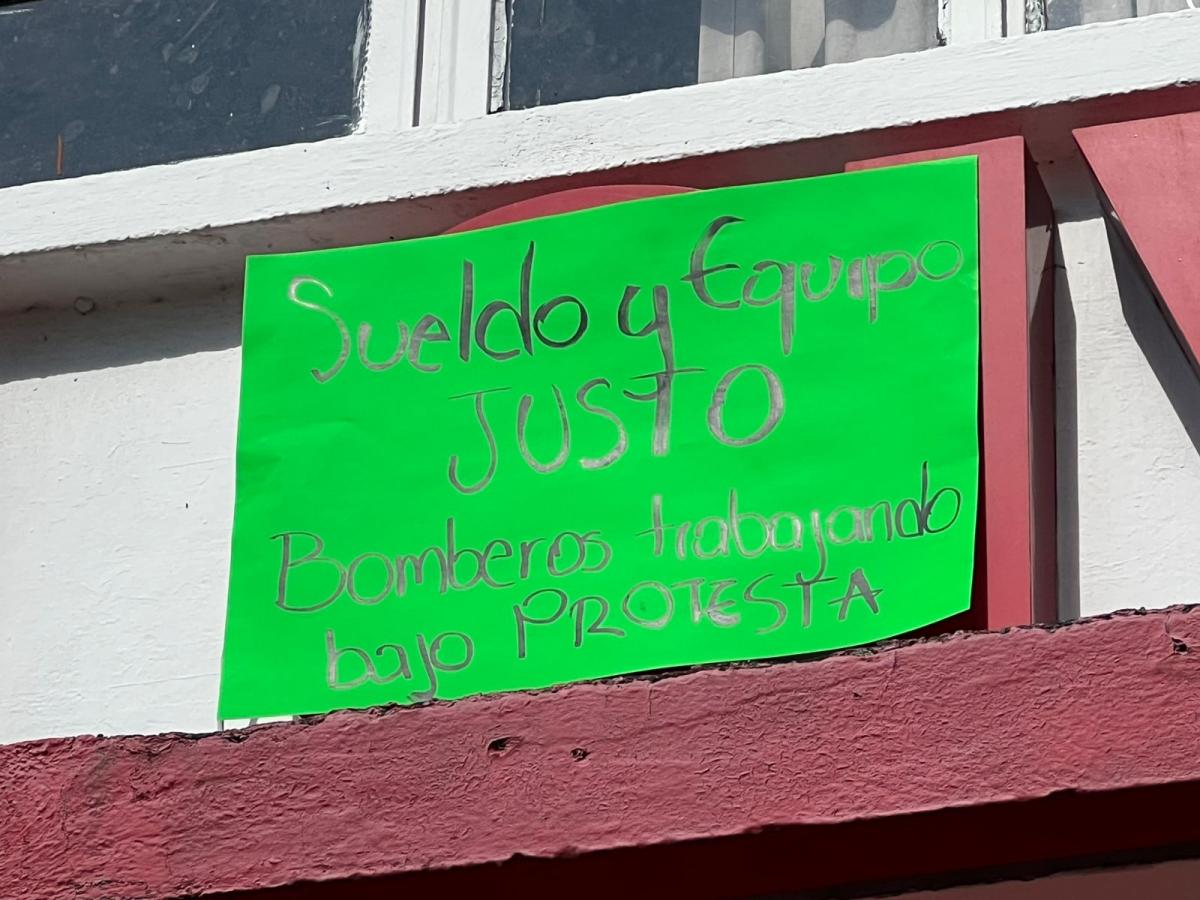 Sueldo y Equipo
JUSTO
Bomberos trabajando
bajo PROTESTA